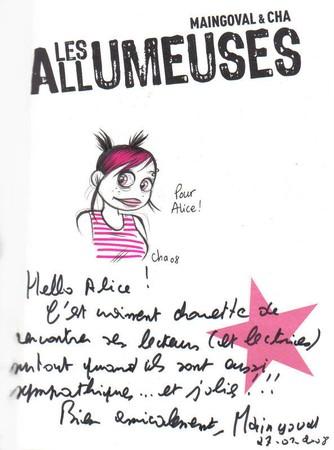 MAINGOVAL & CHA
LES
ALLUMEUSES
Pour
Alice !
Cha 08
Hello Alice !
C'est vraiment chouette de
rencontrer ses lecteurs (et lectrices)
surtout quand ils sont aussi
sympathiques... et jolie !!!
Bien amicalement, Maingoval